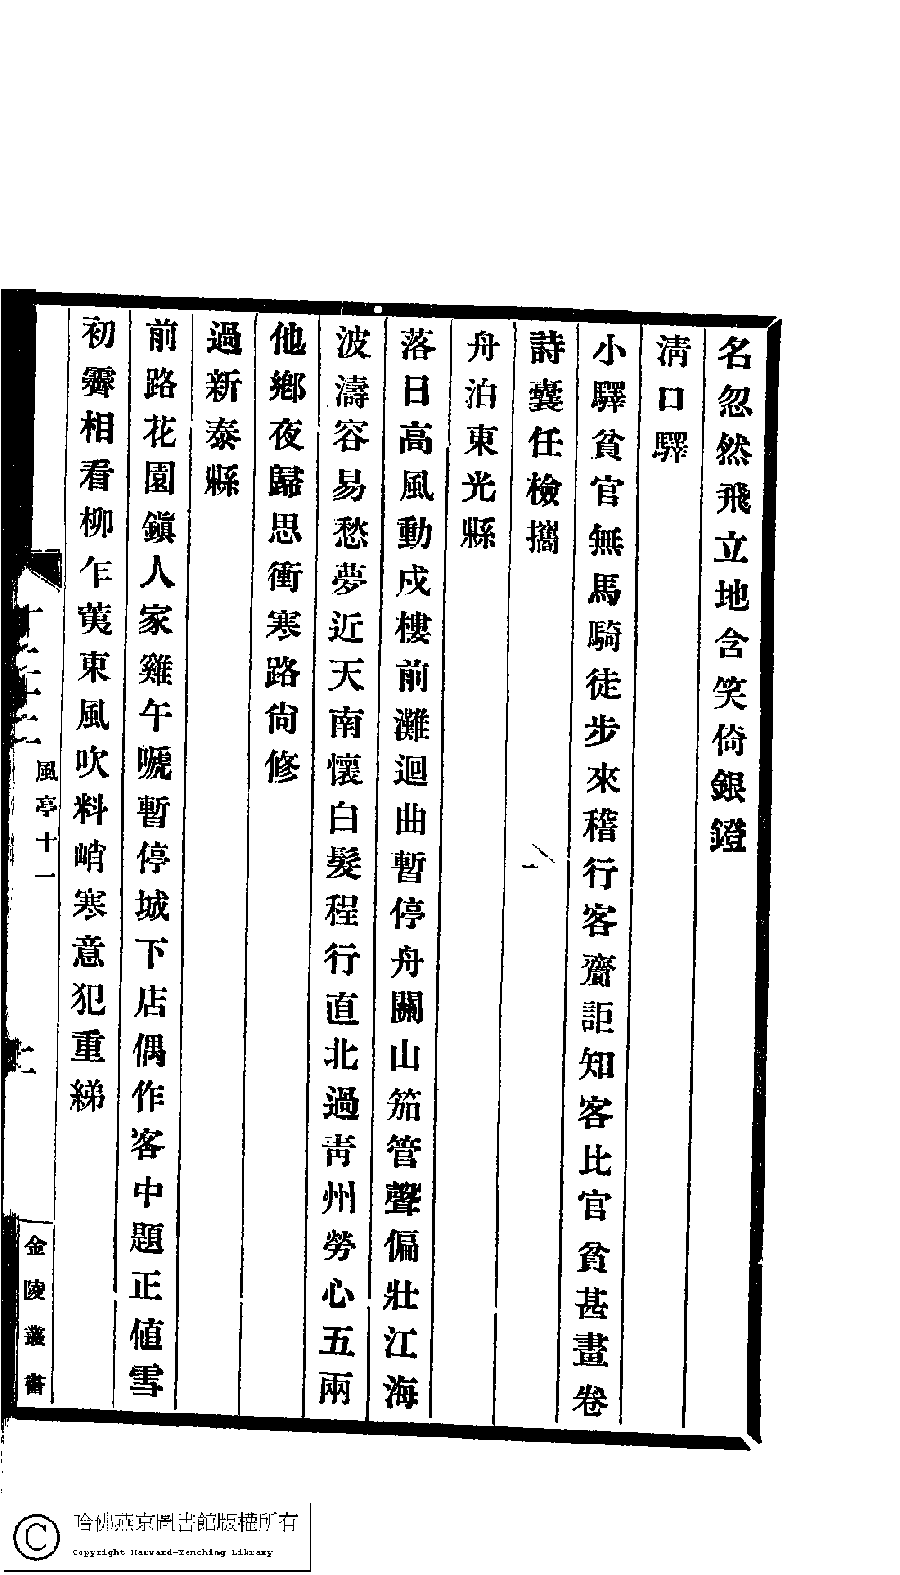 名忽然飛立地含笑倚銀鐙
淸口驛
小驛貧官無馬騎徒步來稽行客齎詎知客比官貧甚畫卷
詩囊任檢攜
舟泊東光縣
落日高風動戍樓前灘迴曲暫停舟關山笳管聲偏壯江海
波濤容易愁夢近天南懷白髮程行直北過靑州勞心五兩
他鄕夜歸思衝寒路尙修
過新泰縣
前路花園鎭人家雞午嗁暫停城下店偶作客中題正値雪
初霽相看柳乍荑東風吹料峭寒意犯重綈
風亭十一
金陵叢書
哈佛燕京圖書館版權所有
Copyright Harvard-Yenching Library